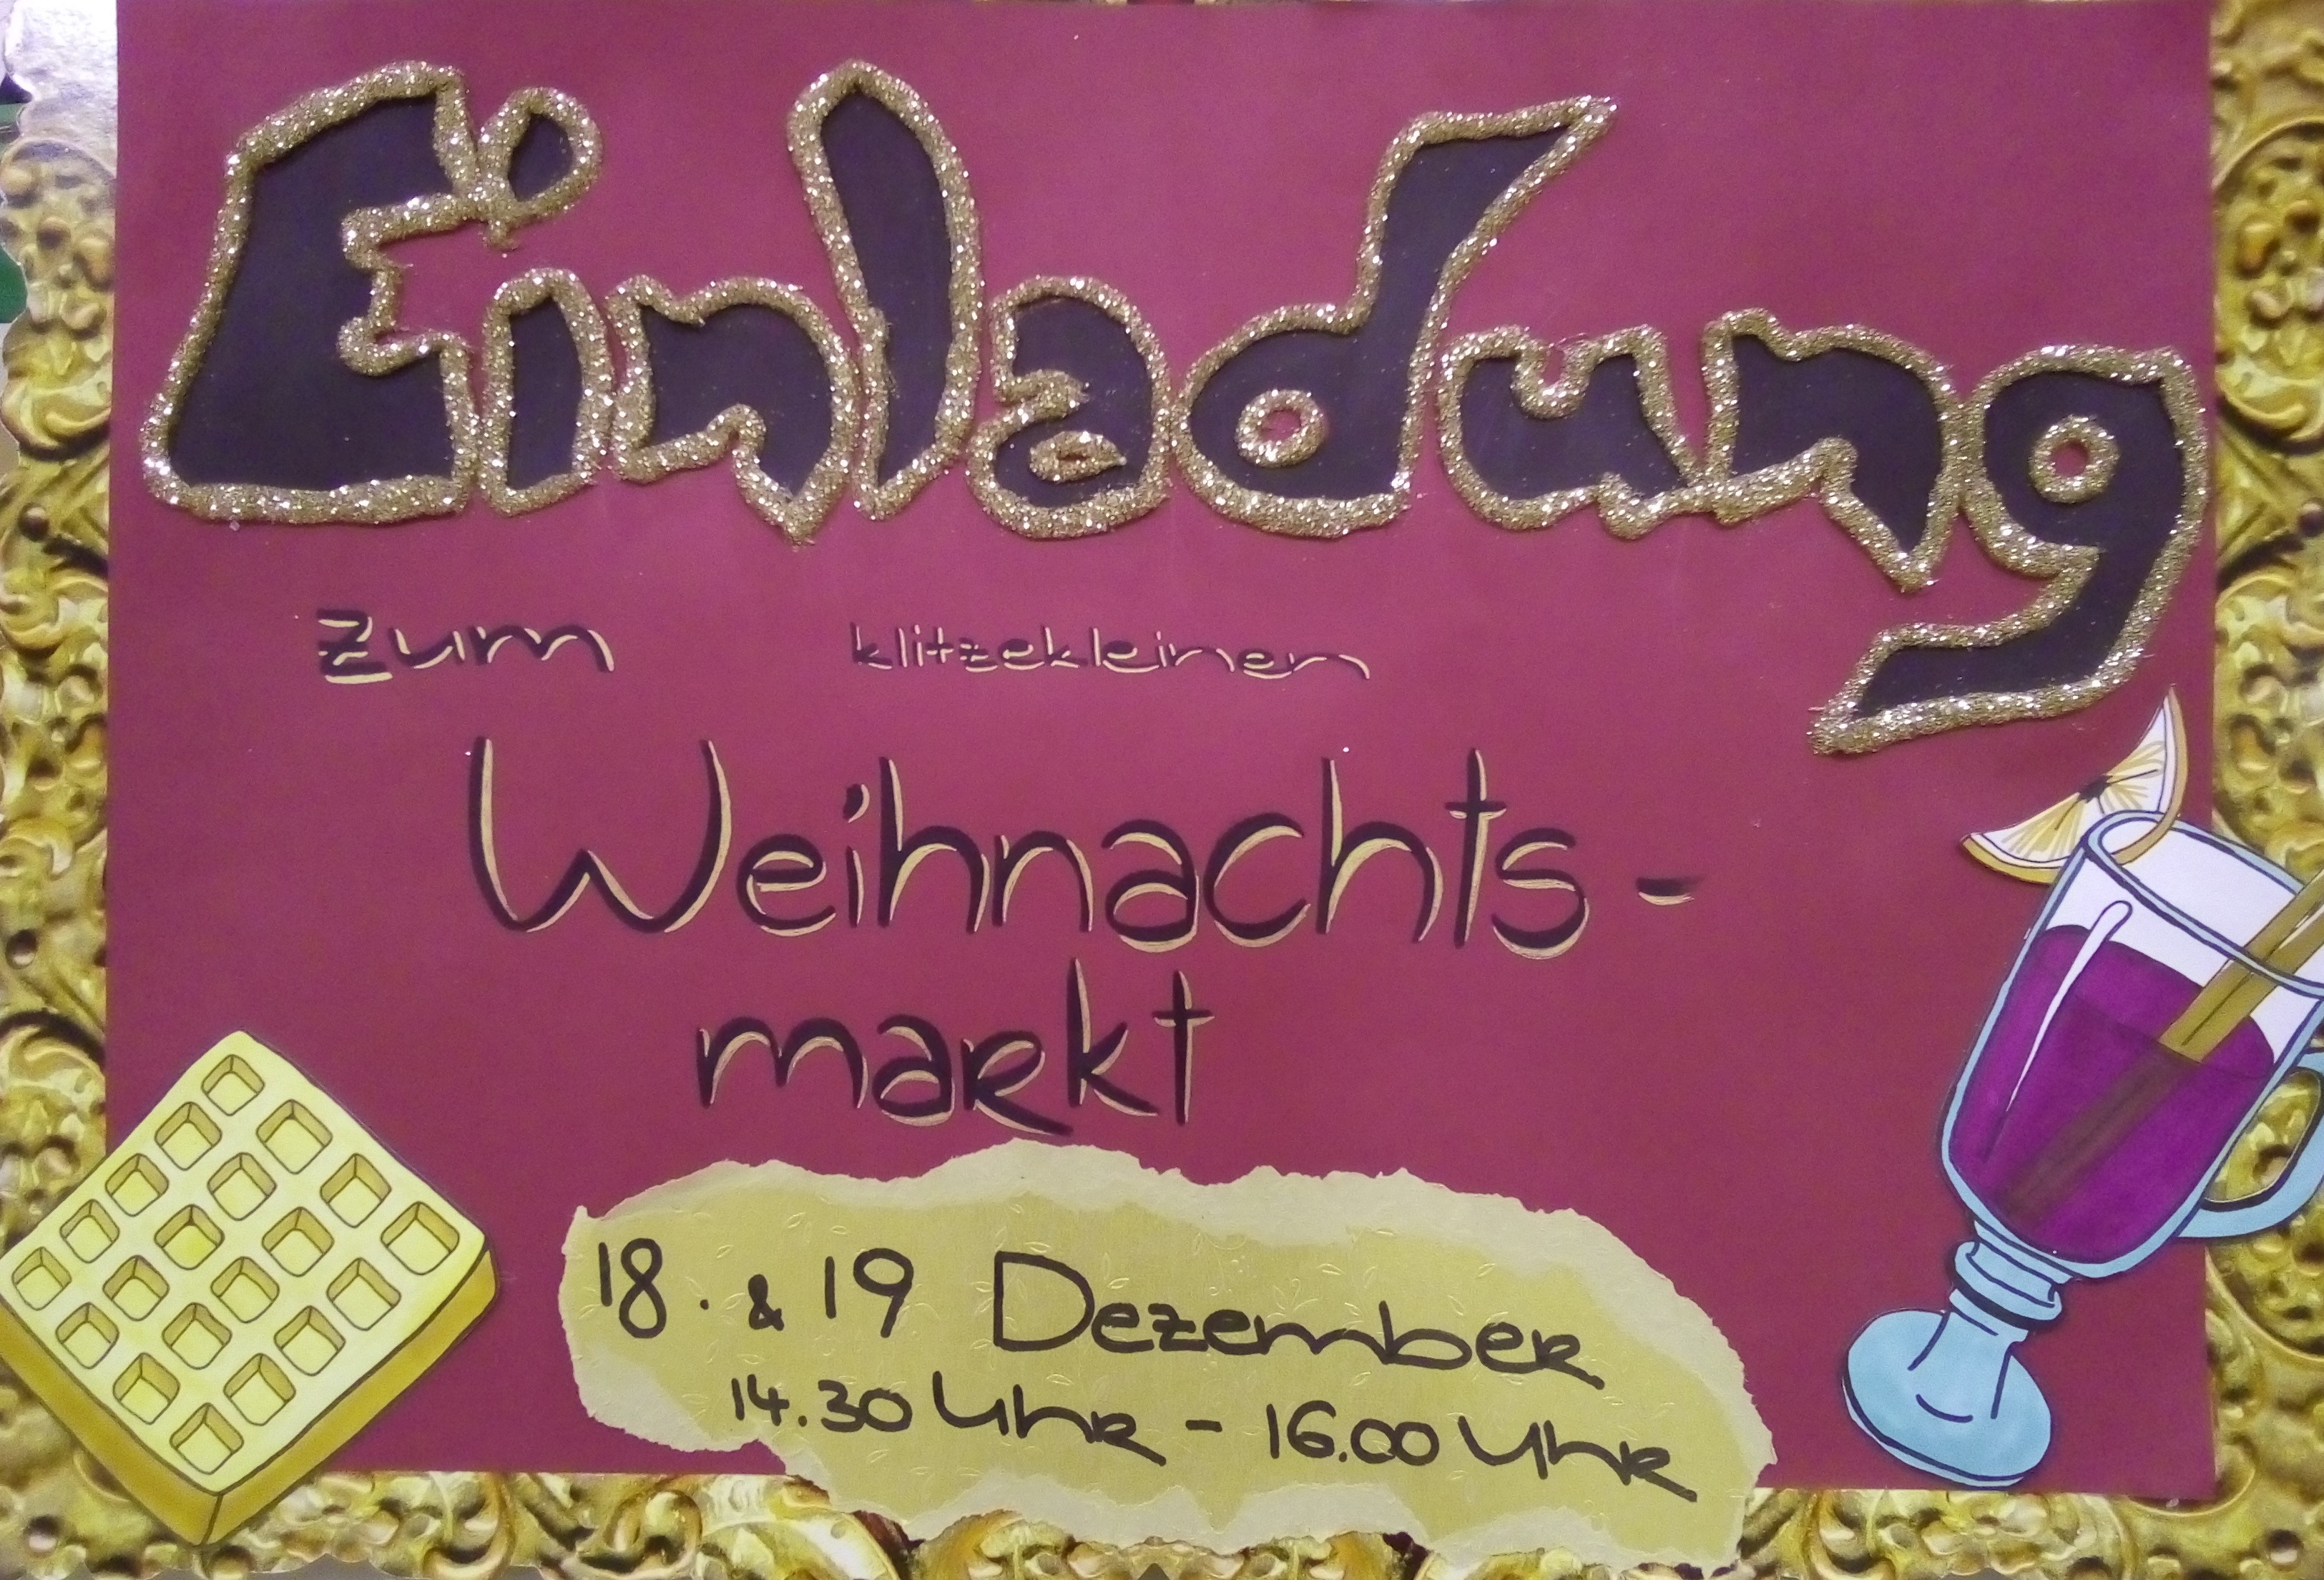 Einladung
zum klitzekleinen
Weihnachts-
markt
18. & 19 Dezember
14.30 Uhr - 16.00 Uhr